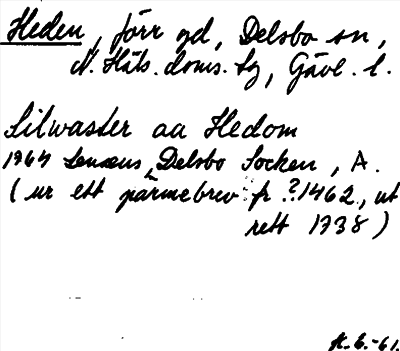 Heden, förr gd, Delsbo sn,
N. Häls. doms. tg, Gävl. l.
Silwaster aa Hedom
1764 Lenæus, Delsbo Socken, A.
(ur ett pärmebrev fr. ? 1462, ut
rett 1738)
K.G.-61.